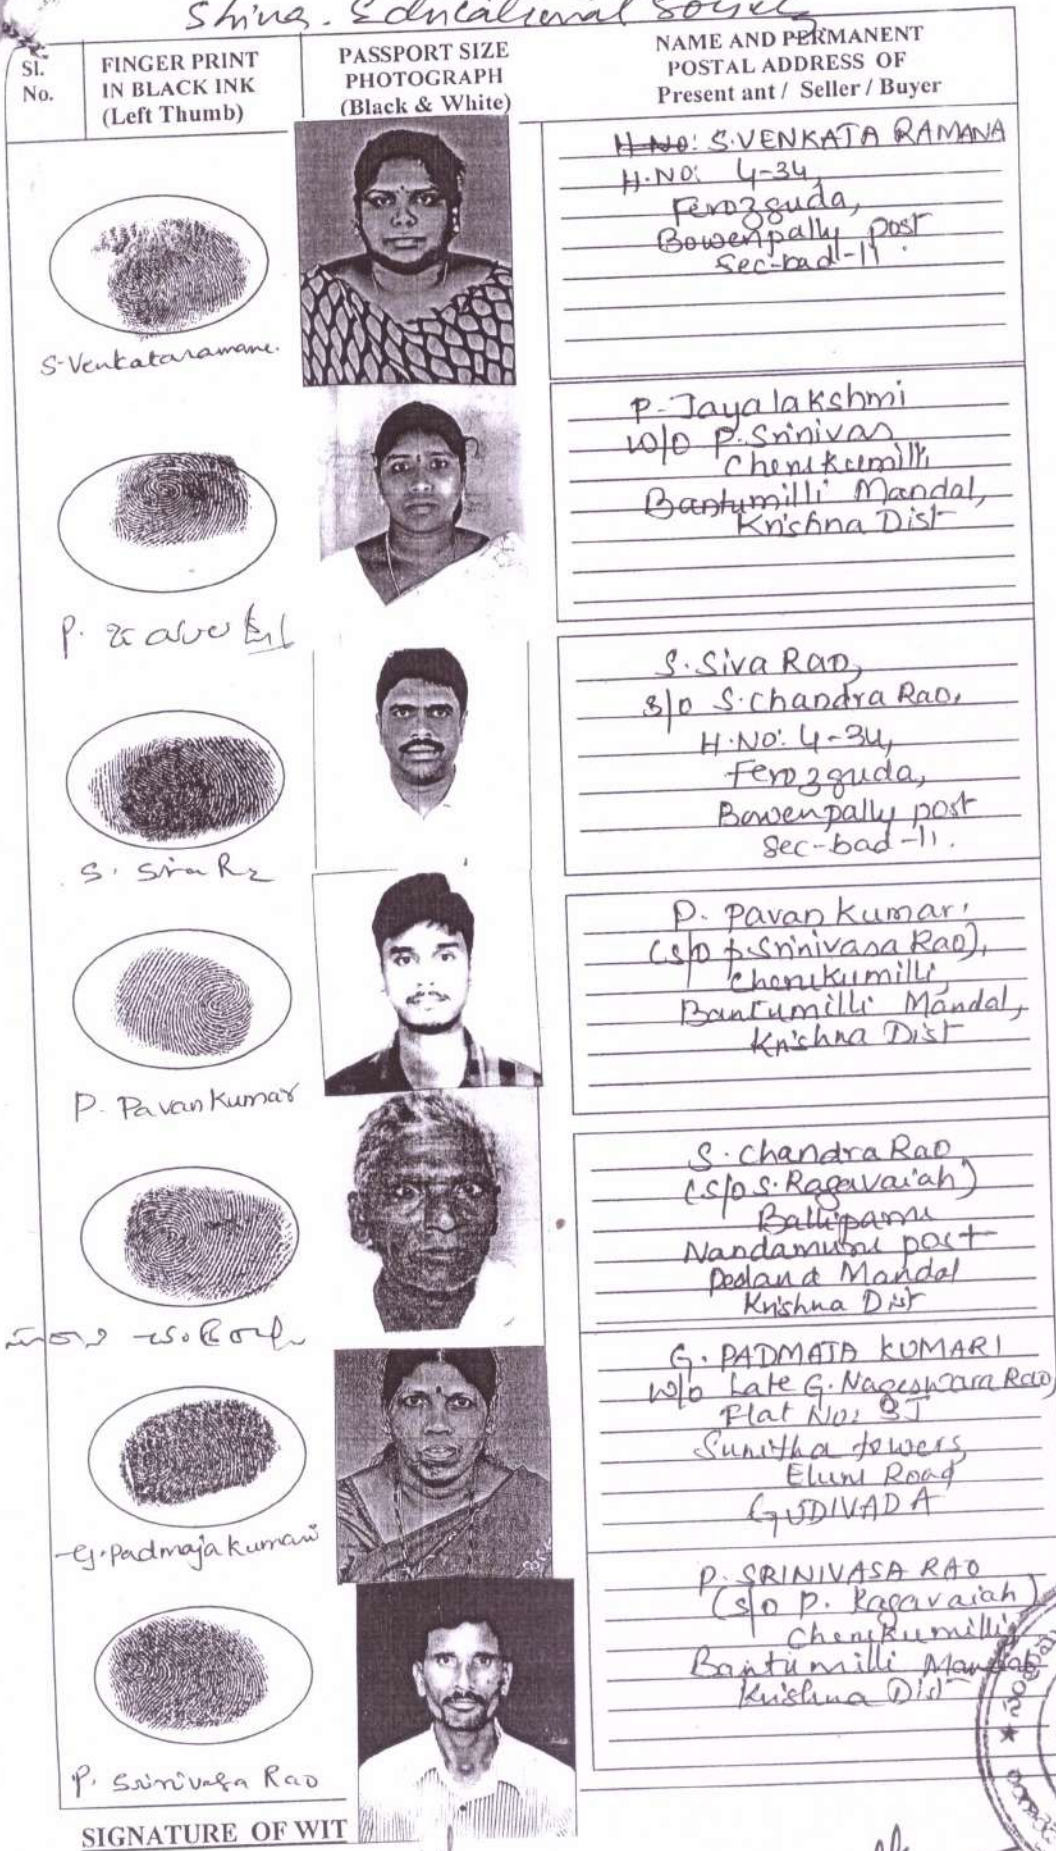 Educational Society
Sl.
No.
FINGER PRINT
IN BLACK INK
(Left Thumb)
PASSPORT SIZE
PHOTOGRAPH
(Black & White)
NAME AND PERMANENT
POSTAL ADDRESS OF
Present ant / Seller / Buyer
H.NO: S.VENKATA RAMANA
H.NO: 4-34,
Ferozguda,
Bowenpally post
Sec-bad-11.
S-Venkataramana.
P. Jayalakshmi
W/o P. Srinivas
Chenikumilli
Bantumilli Mandal,
Krishna Dist
P. జయలక్ష్మి
S. Siva Rao,
S/o S. Chandra Rao,
H.NO: 4-34,
Ferozguda,
Bowenpally post
Sec-bad-11.
S. Siva Ro
P. Pavan Kumar,
(S/o P. Srinivasa Rao),
Chenikumilli,
Bantumilli Mandal,
Krishna Dist
P. Pavan Kumar
S. Chandra Rao
(S/o S. Ragavaiah)
Ballipamu
Nandamuru post
Pedana Mandal
Krishna Dist
G. PADMAJA KUMARI
W/o Late G. Nageswara Rao
Flat No: 3J
Sunitha towers,
Eluru Road
GUDIVADA
G. Padmaja Kumari
P. SRINIVASA RAO
(S/o P. Ragavaiah)
Chenikumilli
Bantumilli Mandal
Krishna Dist
P. Srinivasa Rao
SIGNATURE OF WIT